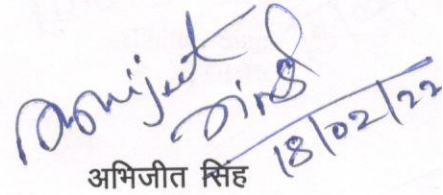 Abhijeet
Singh
18/02/22
अभिजीत सिंह